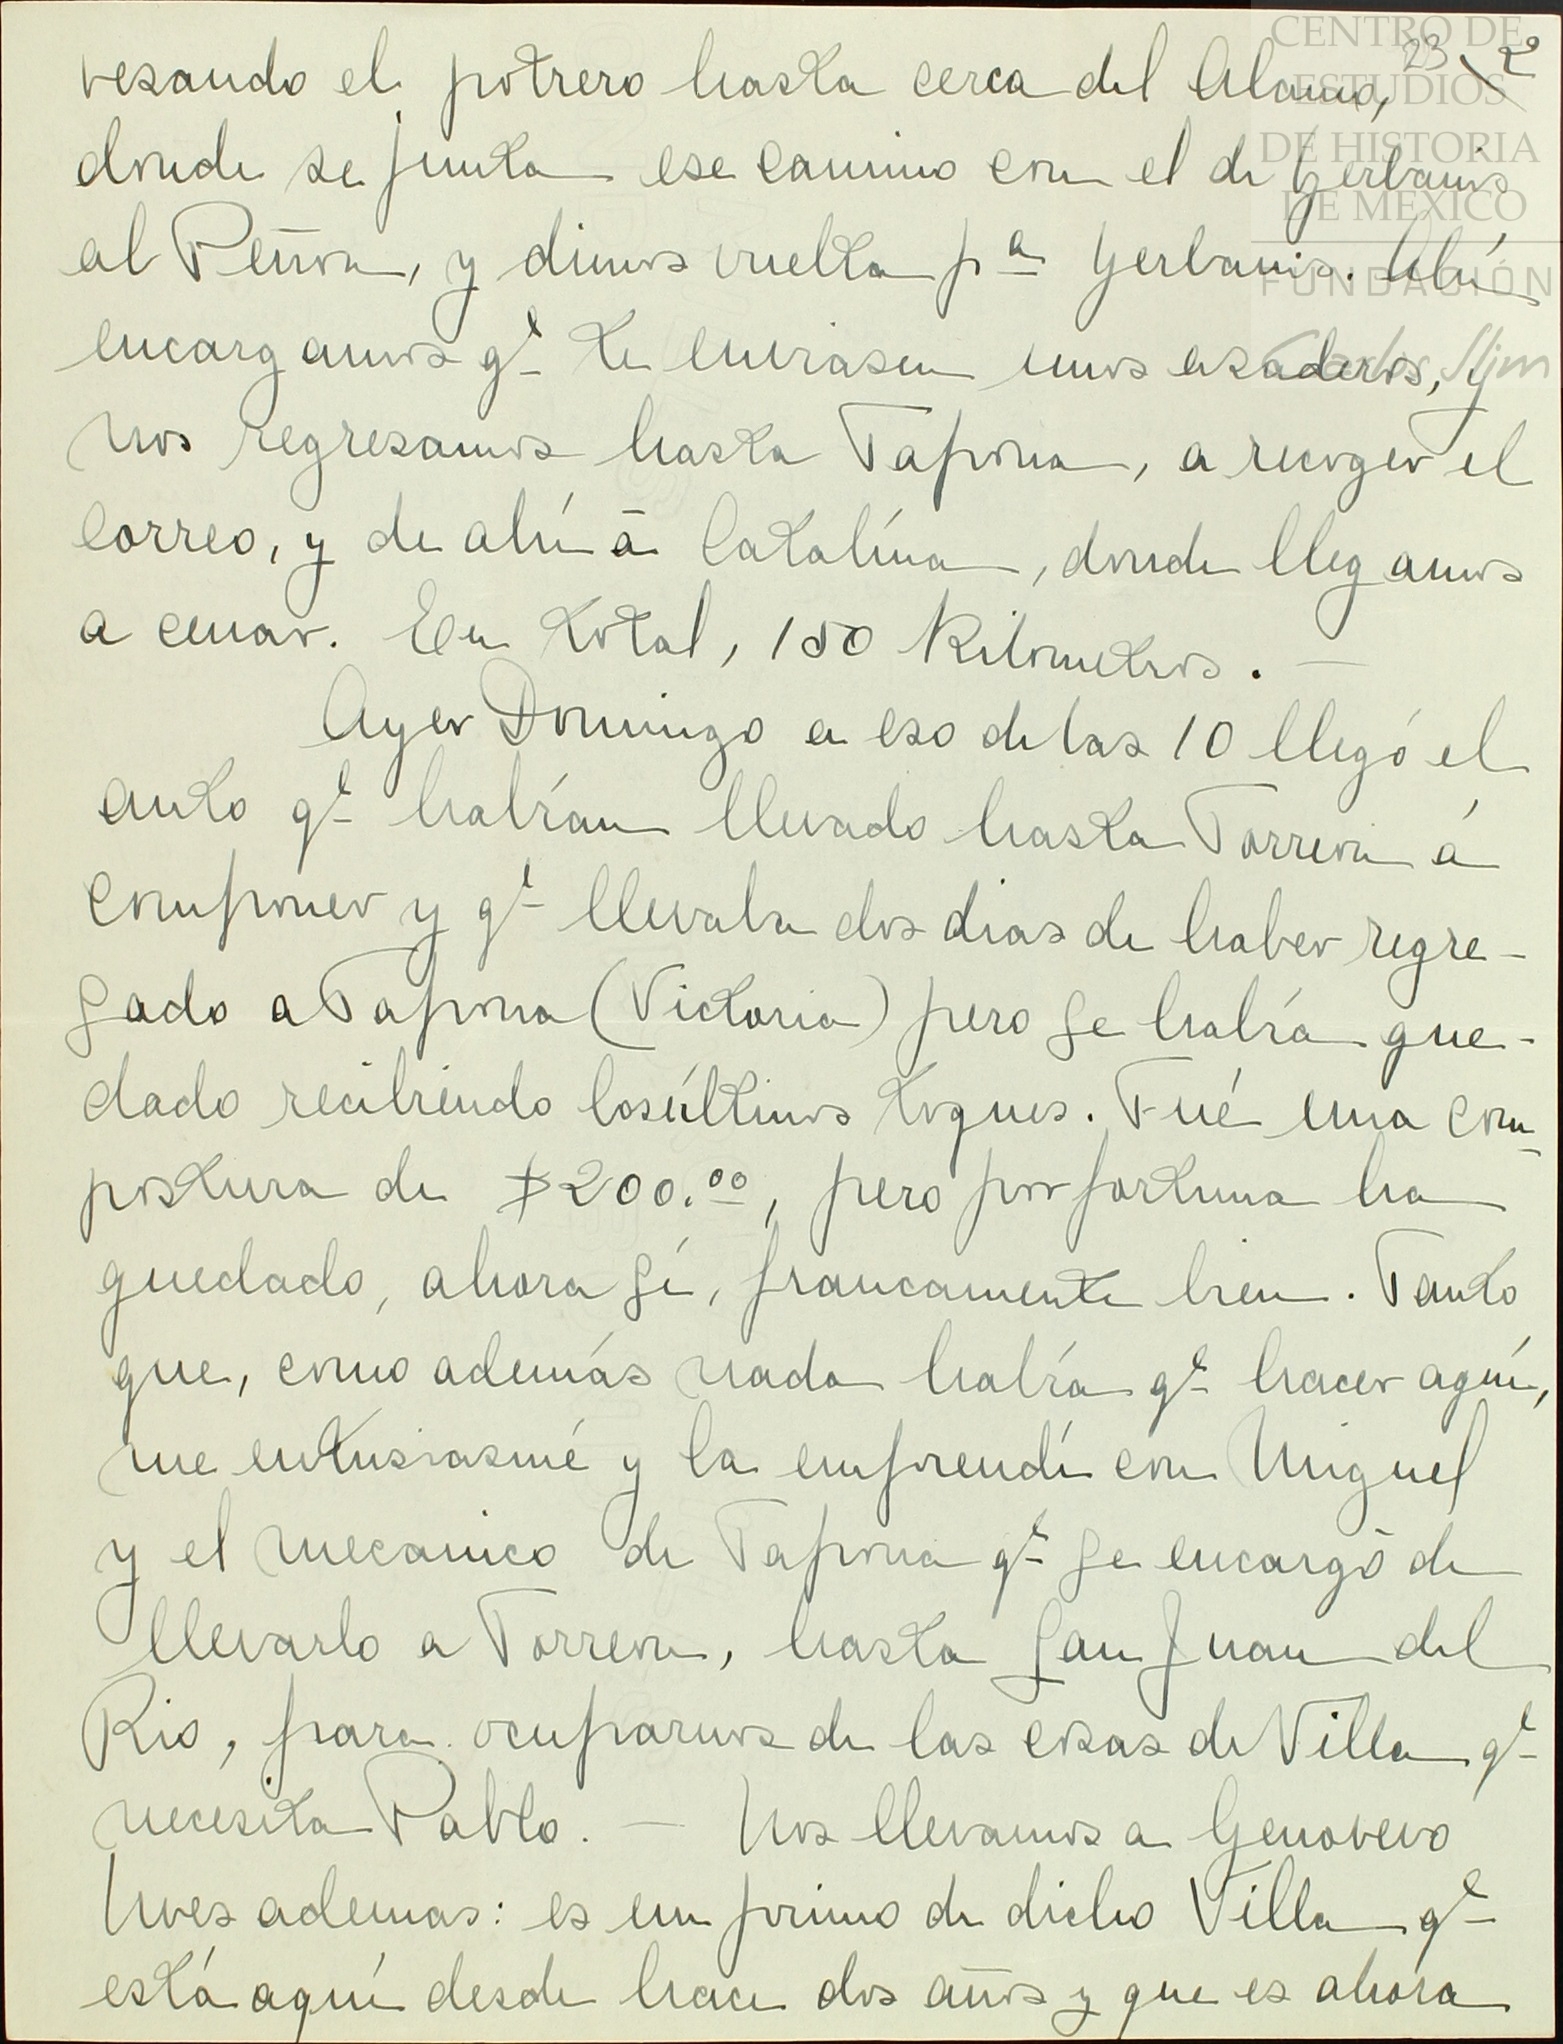 CENTRO DE
ESTUDIOS
DE HISTORIA
DE MEXICO
FUNDACIÓN
Carlos Slim
23
vesando el potrero hasta cerca del Alamo,
donde se junta ese camino con el de Yerbanis
al Peñon, y dimos vuelta pª Yerbanis. Ahí
encargamos qᵉ te enviasen unos asaderos, y
nos regresamos hasta Tapona, a recoger el
correo, y de ahí á Catalína, donde llegamos
a cenar. En total, 150 Kilometros. —
Ayer Domingo a eso de las 10 llegó el
auto qᵉ habían llevado hasta Torreon á
componer y qᵉ llevaba dos dias de haber regre-
sado a Tapona (Victoria) pero se habrá que-
dado recibiendo los últimos toques. Fué una com-
postura de $200.⁰⁰, pero por fortuna ha
quedado, ahora sí, francamente bien. Tanto
que, como además nada había qᵉ hacer aquí,
me entusiasmé y la emprendí con Miguel
y el mecanico de Tapona qᵉ se encargó de
llevarlo a Torreon, hasta San Juan del
Rio, para ocuparnos de las cosas de Villa qᵉ
necesita Pablo. — Nos llevamos a Genovevo
ademas: es un primo de dicho Villa qᵉ
está aquí desde hace dos años y que es ahora